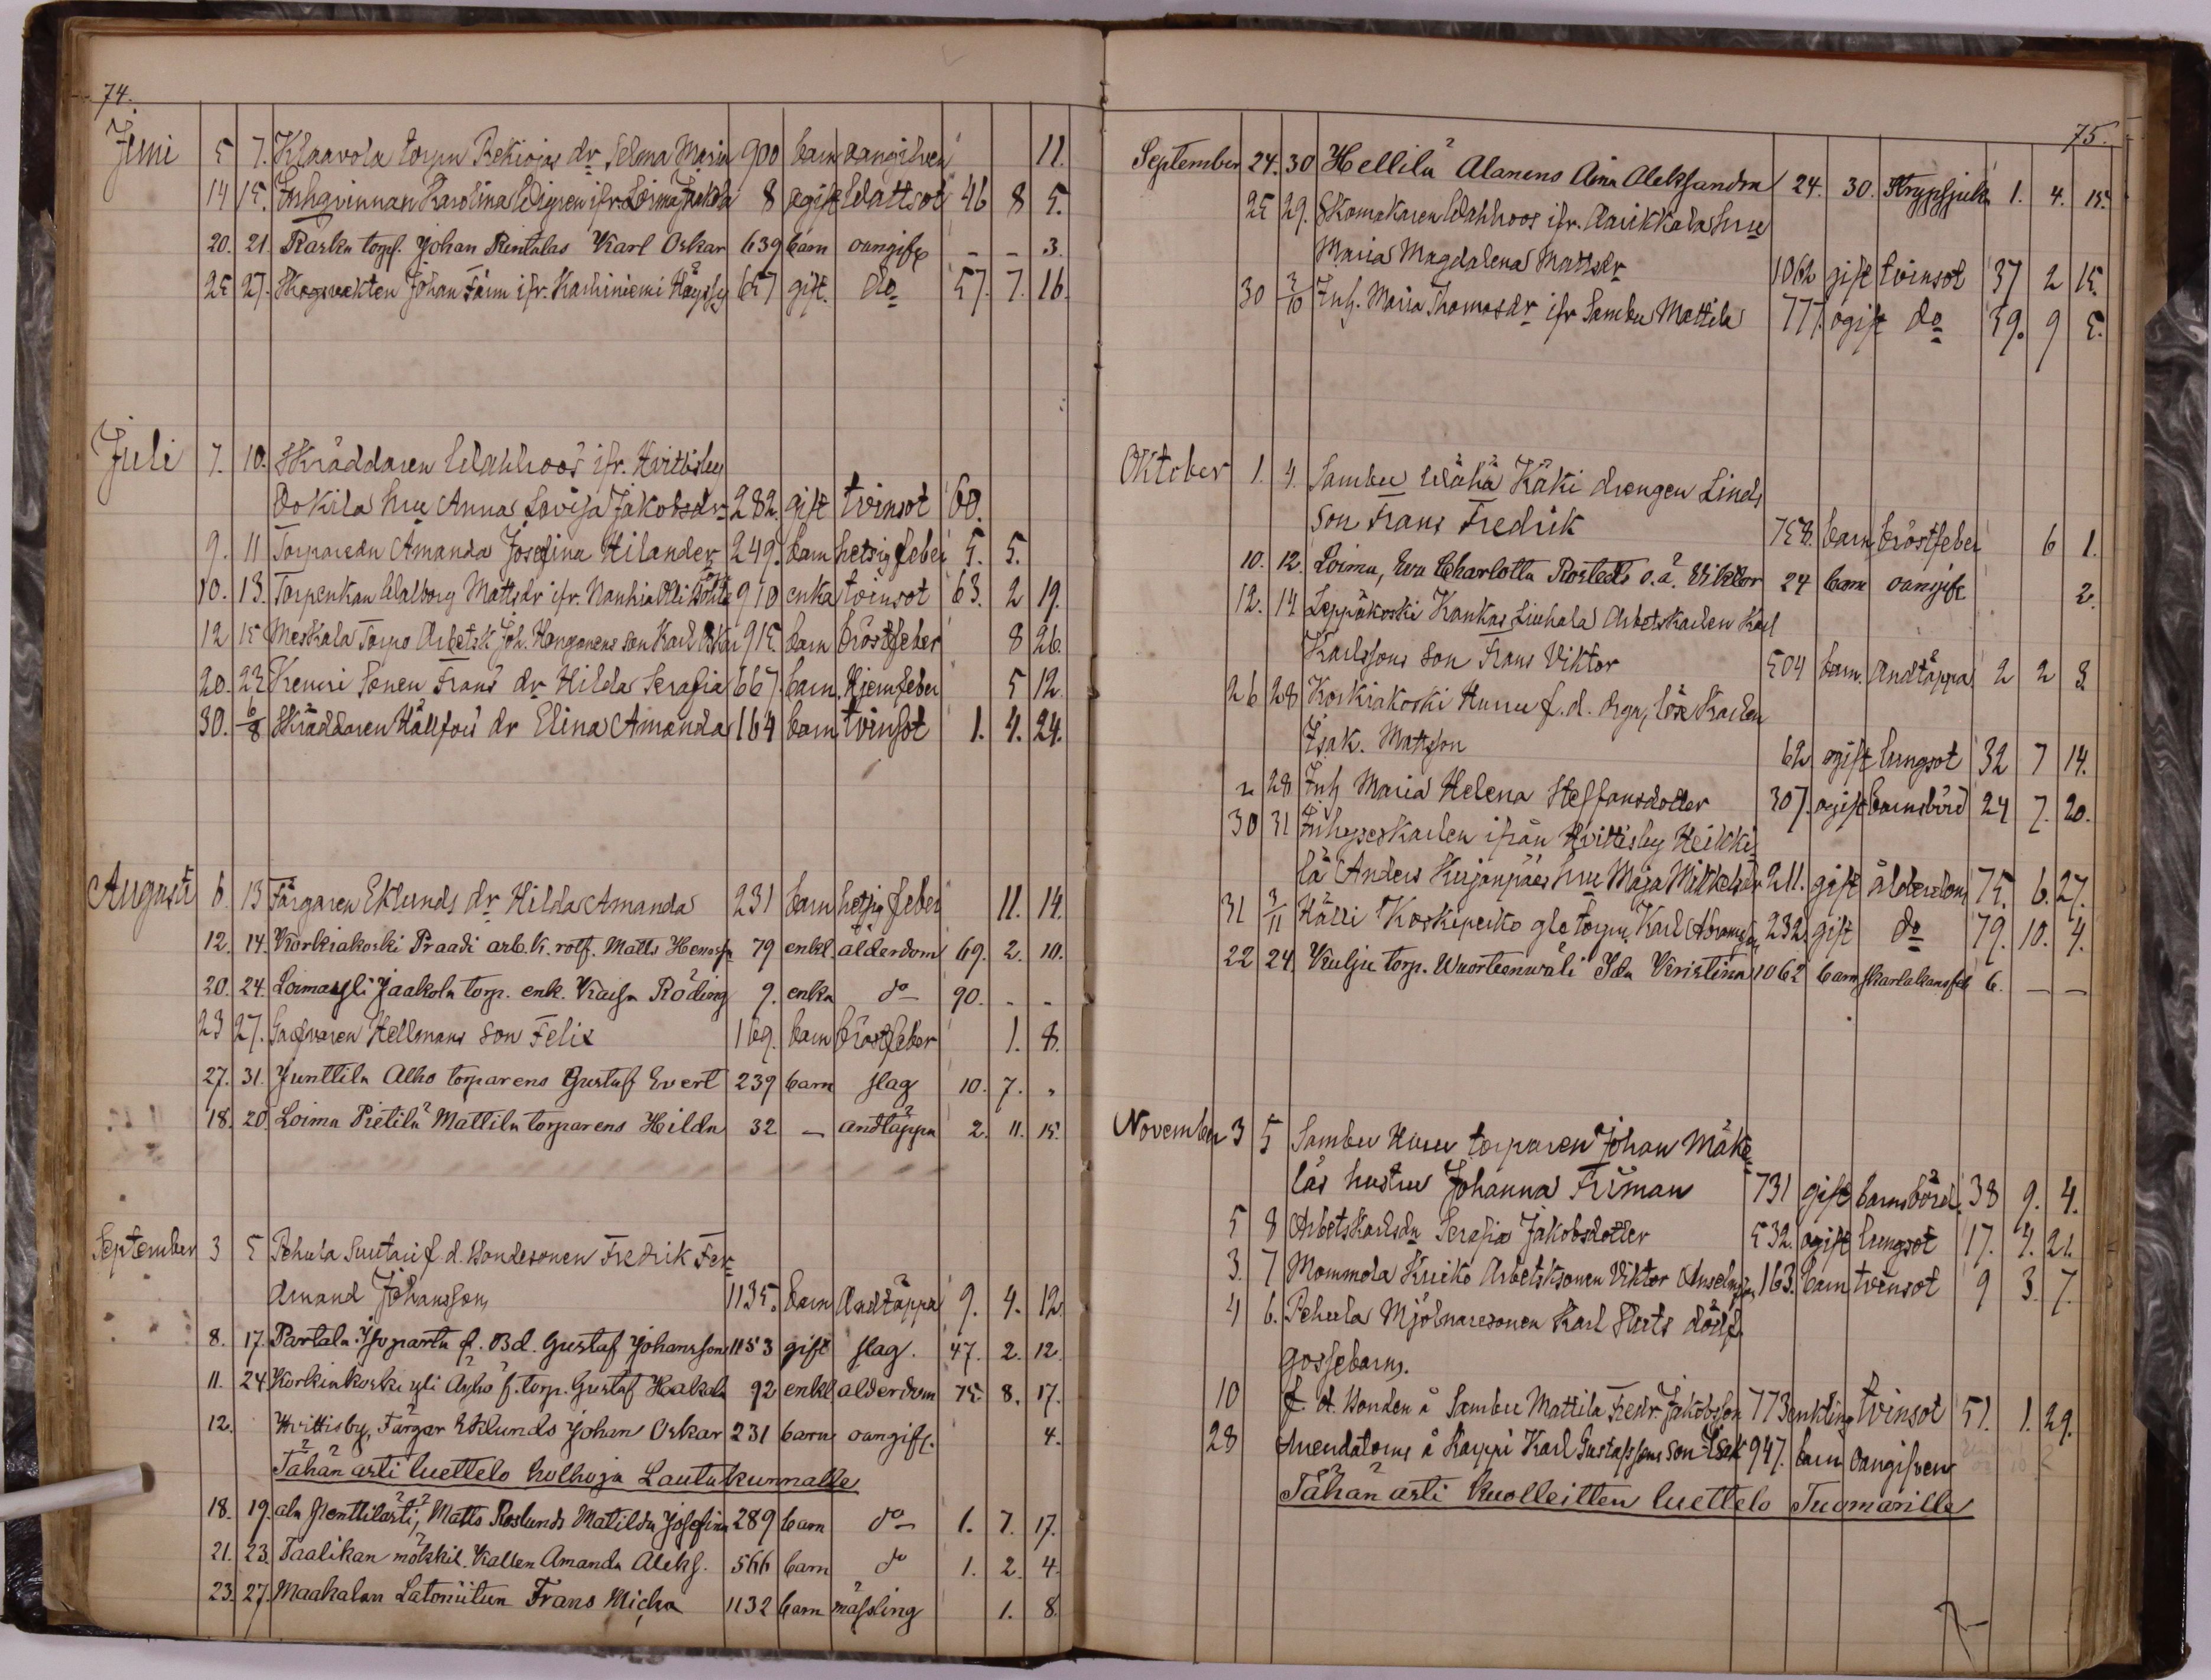 74.
Juni 5 7. Klaavola torpn Rekiojas dr Selma Maria 900 barn oangifven 11.
14 15. Inhqvinnan Karolina Widgren ifr. Loima Jaakola 8 ogift Wattsot 46 8 5.
20. 21. Raskn torpf. Johan Rentalas Karl Oskar 639 barn oangift – – 3.
25 27. Skogsvakten Johan Färm ifr. Karhiniemi 657 gift. do 57. 7. 16.
Juli 7. 10. Skräddaren Wahlroos ifr. Hvittisby
Dokila hru Anna Lovisa Jakobsdr 282. gift tvinsot 60.
9. 11 Torparedn Amanda Josefina Hilander 249. barn hetsig feber 5. 5.
10. 13. Torpenkan Walborg Mattsdr ifr. Nanhia Olli 910 enka tvinsot 63. 2 19.
12 15 Meskala Torpo Arbetsk Joh. Hongonens son Karl Oskar 915. barn bröstfeber 8 26.
20. 23 Keuri Sonen Frans dr Hilda Serafia 667. barn. Hjernfeber 5 12.
30. 6/8 Skräddaren Hällfors dr Elina Amanda 164 barn tvinsot 1. 4. 24.
Augusti 6. 13 Färgaren Eklunds dr Hilda Amanda 231 barn hetsig feber 11. 14.
12. 14. Korkiakoski Praadi arb.k. rotf. Matts Henrss. 79 enkl. ålderdom 69. 2. 10.
20. 24. Loima yli Jaakola torp. enk. Kaisa Röding 9. enka do 90. - -
23 27. Garfvaren Hellmans son Felix 169. barn bröstfeber 1. 8.
27. 31. Junttila Alho torparens Gustaf Evert 239 barn slag 10. 7. "
18. 20. Loima Pietilä Mattila torparens Hilda 32 – andtäppa 2. 11. 15.
September 3 5 Pehula Suutari f. d. Bondesonen Fredrik Fer-
dinand Johansson 1135. barn Andtäppa 9. 4. 12.
8. 17. Partala Isopartn f. Bd. Gustaf Johansson 1153 gift slag. 47. 2. 12.
11. 24. Korkiakoski yli Äijhö f. torp. Gustaf Haakola 92 enkl. ålderdom 75. 8. 17.
12. Hvittisby, Färgar Eklunds Johan Oskar 231 barn oangift. 4.
Tähän asti luettelo holhoja Lautakunnalle
18. 19. ala Penttilästi, Matts Roslunds Matilda Josefina 289 barn do 1. 7. 17.
21. 23. Taalikan mötskil. Kallen Amanda Aleks. 566 barn do 1. 2. 4.
23. 27. Maakalan Latoniitun Frans Micha 1132 barn mässling 1. 8.
75.
September 24. 30 Hellilä Alanens Aina Aleksandra 24. 30. Strypsjuka 1. 4. 15.
25 29. Skomakaren Wahlroos ifr. Aarikkala hru
Maria Magdalena Mattsdr 1062 gift tvinsot 37 2 15.
30 2/10 Inh. Maria Thomasdr ifr Sambu Mattila 777. ogift do 39. 9 5.
Oktober 1. 4. Sambu Wähä Käki drengen Linds
son Frans Fredrik 758. barn bröstfeber 6 1.
10. 12. Loima, Eva Charlotta Rostedts o.ä. Viktor 24 barn oangift 2.
12. 14 Leppäkoski Kankas Liuhala Arbetskarlen Karl
Karlssons son Frans Viktor 504 barn. Andtäppa 2 2 3.
26 28 Koskiakoski Huru f.d. drgn, lösa Karlen
Isak. Mattsson 62 ogift lungsot 32 7 14.
" 28 Inh Maria Helena Steffansdotter 307. ogift barnsbörd 24 7. 20.
30 31 Inhyseskarlen ifrån Hvittisby Heikki-
lä Anders Kujanpääs hru Maja Mikkelsdr 211. gift ålderdom 75. 6. 27.
31 3/11 Hälli Koskiperko gle torpn. Karl Abramss. 232 gift do 79. 10. 4.
22 24 Kulju torp. Wuorteenwäli Ida Kristina 1062 barn skarlakansfeb 6. – –
November 3 5 Sambu Huru torparen Johan Mäke-
läs hustru Johanna Friman 731 gift barnsbörd. 38 9. 4.
5 8 Arbetskarlsdn Serafia Jakobsdotter 532. ogift lungsot 17. 4. 21.
3. 7 Mommola Kuiko Arbetsksonen Viktor Anselmss. 163. barn tvinsot 9 3. 7.
4 6. Pehula Mjölnaresonen Karl Flurts dödf.
gossebarn.
10 f. d. Bonden å Sambu Mattila Fredr. Jakobsson 773 enkling tvinsot 51. 1. 29.
28 Arrendatorns å Karppi Karl Gustafssons son Isak 947. barn oangifven
Tähän asti Kuolleitten luettelo Tuomarille